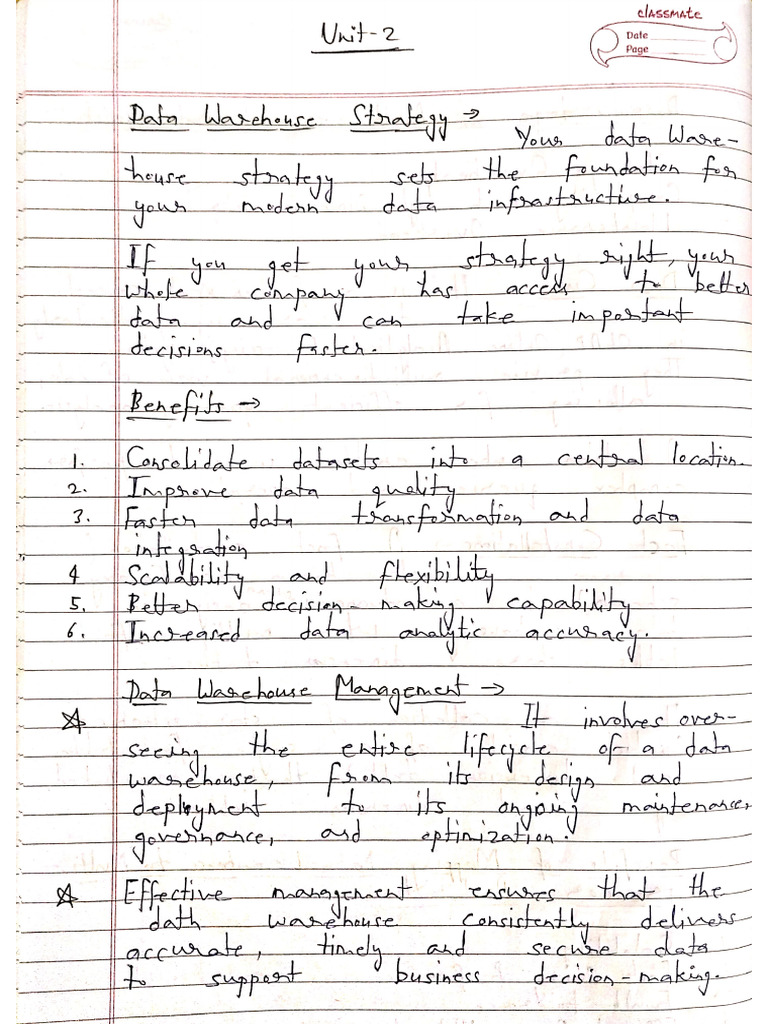 classmate
Date
Page
Unit-2
Data Warehouse Strategy →
Your data Ware-
house strategy sets the foundation for
your modern data infrastructure.
If you get your strategy right, your
whole company has access to better
data and can take important
decisions faster.
Benefits →
1. Consolidate datasets into a central location.
2. Improve data quality
3. Faster data transformation and data
integration
4 Scalability and flexibility
5. Better decision-making capability
6. Increased data analytic accuracy.
Data Warehouse Management →
☆ It involves over-
seeing the entire lifecycle of a data
warehouse, from its design and
deployment to its ongoing maintenance,
governance, and optimization.
☆ Effective management ensures that the
dath warehouse consistently delivers
accurate, timely and secure data
to support business decision-making.